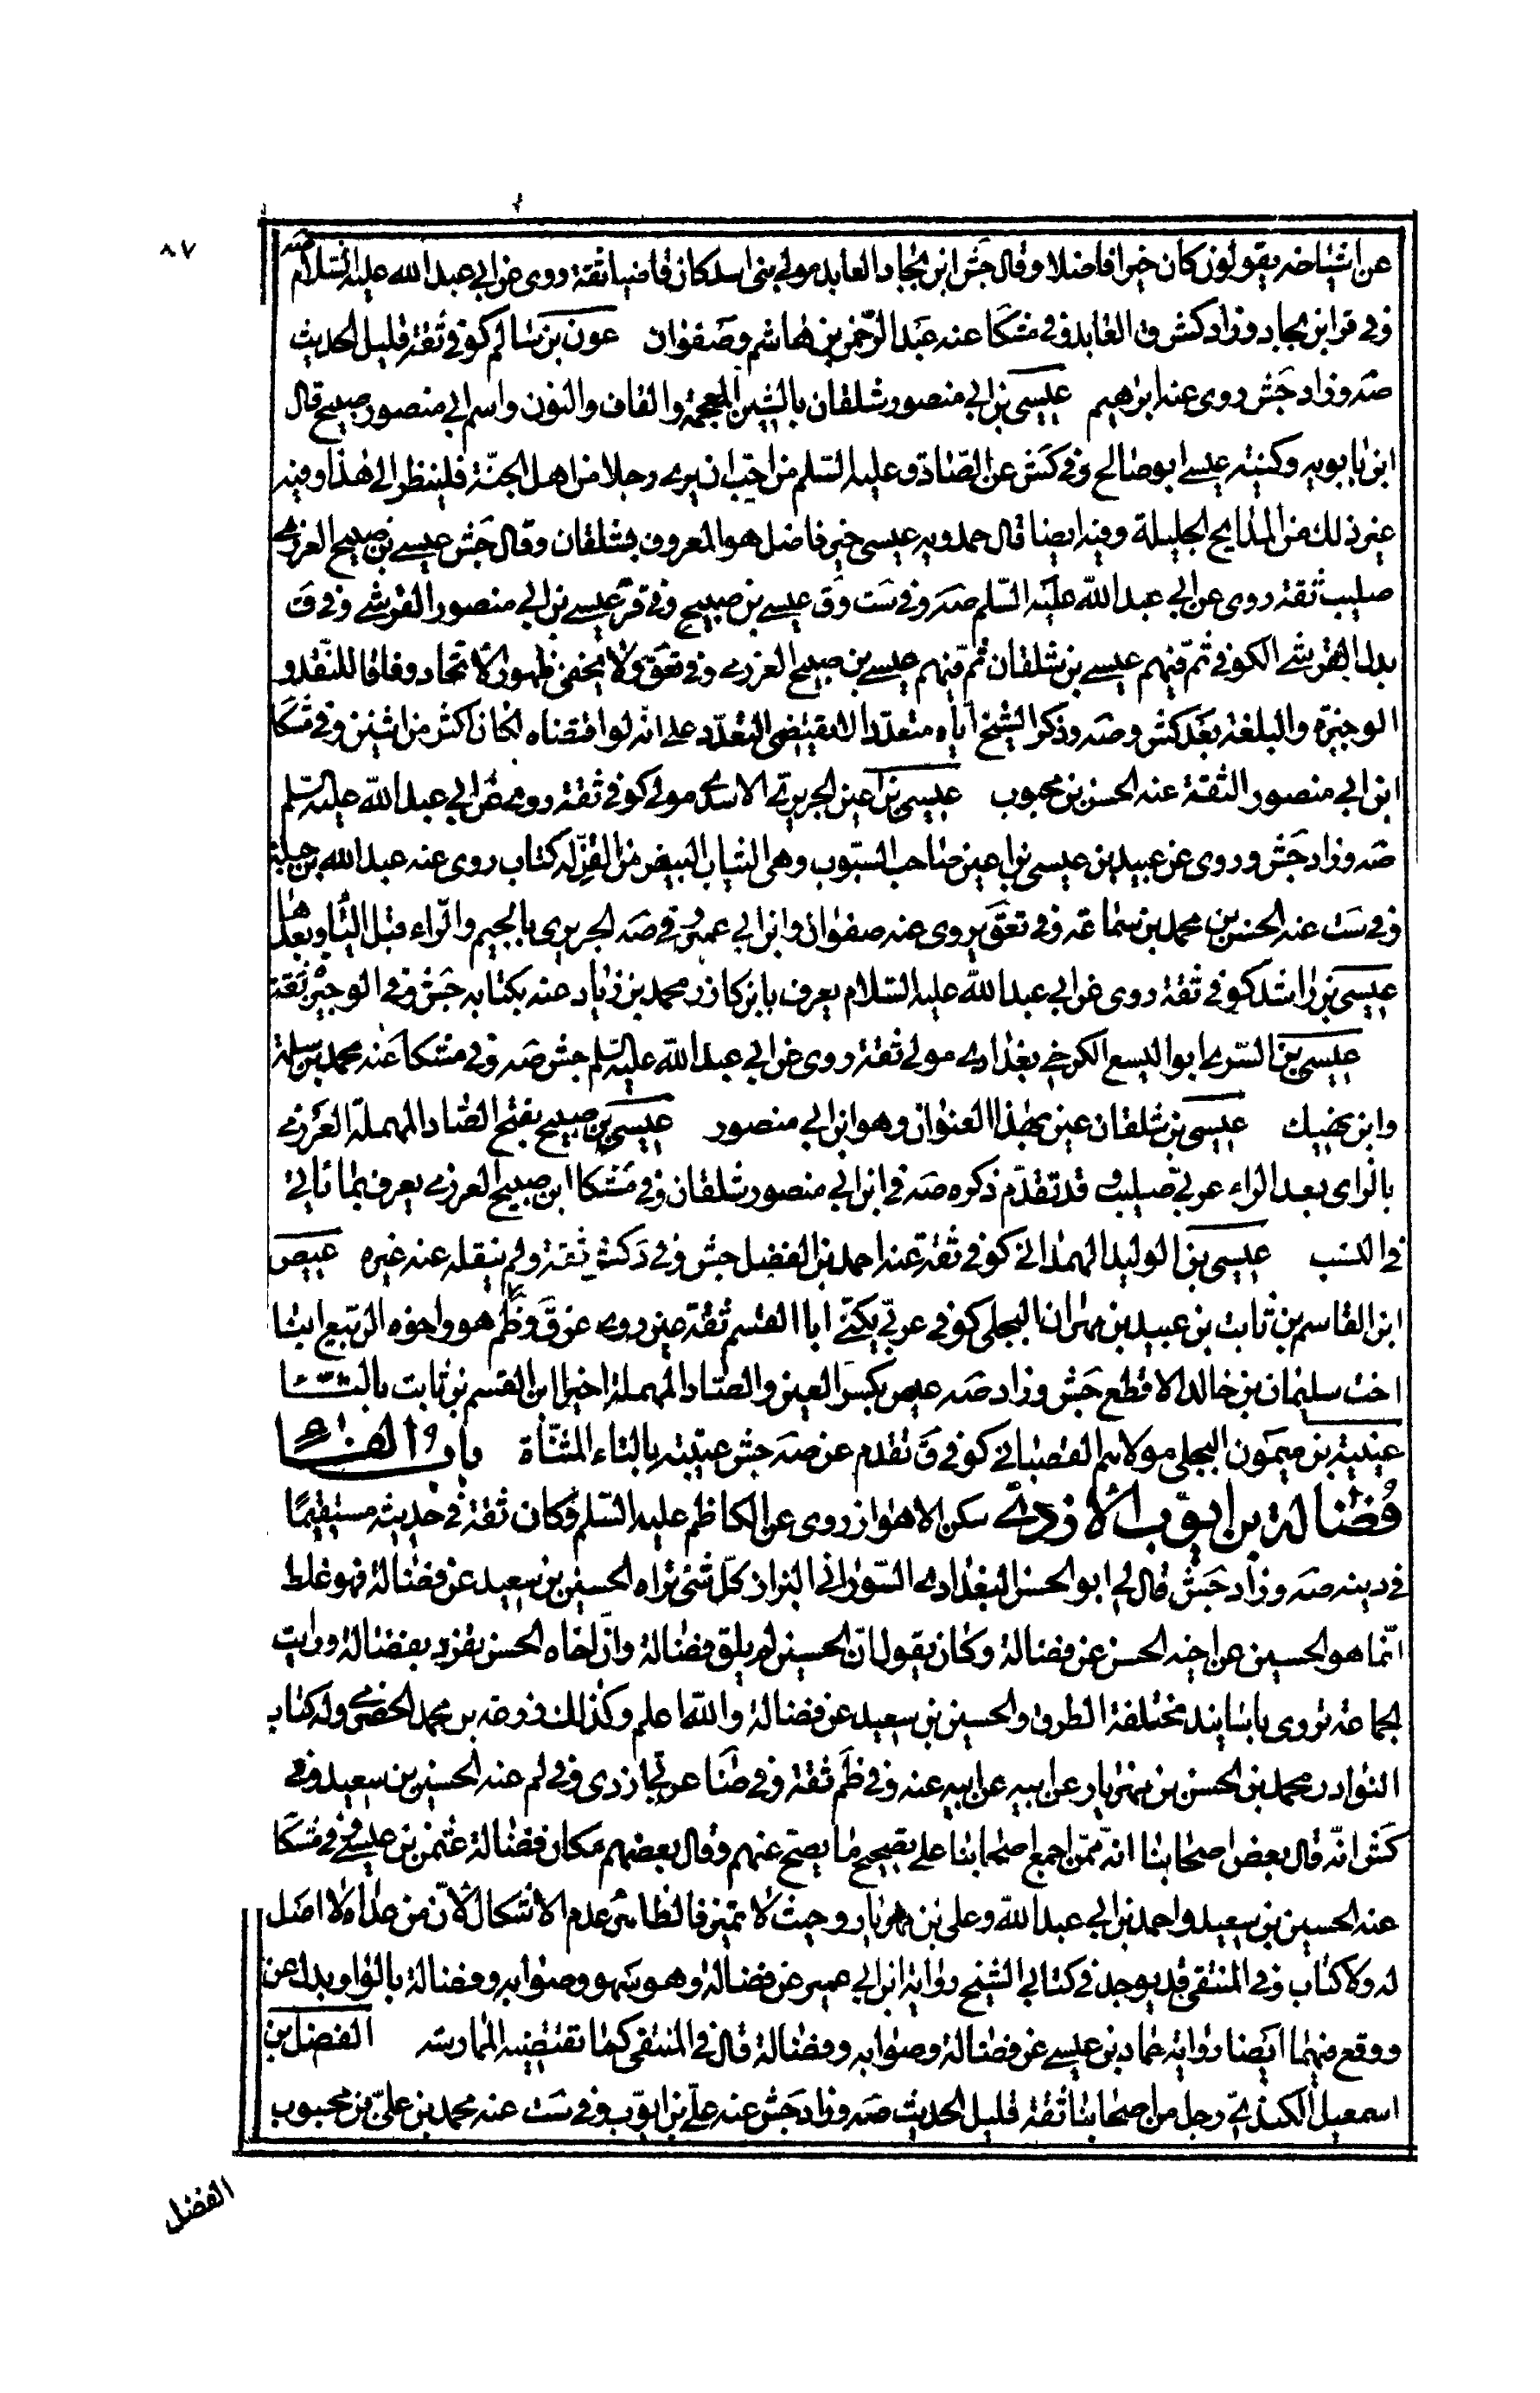 ٨٧
عن اشياخه يقولون كان خيرا فاضلا وقال جش ابن بجاد العابد مولى بنى اسد كان قاضيا ثقة روى عن ابي عبد الله عليه السلام صه
وفي قر ابن بجاد وزاد كش وق العابد وفي مشكا عنه عبد الرحمن بن هاشم وصفوان عون بن سالم كوفي ثقة قليل الحديث
صه وزاد جش روى عنه ابرهيم عيسى بن ابي منصور شلقان بالشين المعجمة والقاف والنون واسم ابي منصور صبيح قال
ابن بابويه وكنيته عيسى ابو صالح وفي كش عن الصادق عليه السلم من احب ان يرى رجلا من اهل الجنة فلينظر الى هذا وفيه
غير ذلك من المدايح الجليلة وفيه ايضا قال حمدويه عيسى خير فاضل هو المعروف بشلقان وقال جش عيسى بن صبيح العرزمى
صليب ثقة روى عن ابي عبد الله عليه السلم صه وفي ست وق عيسى بن صبيح وفي قر عيسى بن ابي منصور القرشى وفي ق
بدل القرشى الكوفي ثم فيهم عيسى بن شلقان ثم فيهم عيسى بن صبيح العزرمى وفي تعق ولا يخفى ظهور الاتحاد وفاقا للنقد و
الوجيزة والبلغة بعد كش وصه وذكر الشيخ اياه متعددا لا يقتضى التعدد على انه لو اقتضاه لكان اكثر من اثنين وفي مشكا
ابن ابي منصور الثقة عنه الحسن بن محبوب عيسى بن اعين الجريرى الاسدى مولى كوفي ثقة روى عن ابي عبد الله عليه السلم
صه وزاد جش وروى عن عبيد بن عيسى بن اعين صاحب السبوب وهى الثياب البيض من القز له كتاب روى عنه عبد الله بن جبلة
وفي ست عنه الحسن بن محمد بن سماعة وفي تعق يروى عنه صفوان وابن ابي عمير وفي صه الجريرى بالجيم والراء قبل الياء وبعدها
عيسى بن راشد كوفي ثقة روى عن ابي عبد الله عليه السلام يعرف بابن كازر محمد بن زياد عنه بكتابه جش وفي الوجيزة ثقة
عيسى بن السرى ابو اليسع الكرخى بغدادى مولى ثقة روى عن ابي عبد الله عليه السلم جش صه وفي مشكا عنه محمد بن سلمة
وابن نهيك عيسى بن شلقان عين بهذا العنوان وهو ابن ابي منصور عيسى بن صبيح بفتح الصاد المهملة العرزمى
بالزاى بعد الراء عربي صليب وقد تقدم ذكره صه في ابن ابي منصور شلقان وفي مشكا ابن صبيح العرزمى يعرف بما ياتي
في النسب عيسى بن الوليد الهمداني كوفي ثقة عنه احمد بن الفضل جش وفي د كش ثقة ولم ينقله عنه غيره عيص
ابن القاسم بن ثابت بن عبيد بن مهران البجلى كوفي عربي يكنى ابا القسم ثقة عين روى عن ق وظم هو واخوه الربيع ابنا
اخت سليمان بن خالد الاقطع جش وزاد صه عيص بكسر العين والصاد المهملة اخيرا ابن القسم بن ثابت بالثاء
عيينة بن ميمون البجلى مولاهم القصباني كوفي ق تقدم عن صه جش عتيبة بالتاء المثناة باب الفاء
فضالة بن ايوب الازدي سكن الاهواز روى عن الكاظم عليه السلم وكان ثقة في حديثه مستقيما
في دينه صه وزاد جش قال لي ابو الحسن البغدادى السوراني البزاز كل شئ تراه الحسين بن سعيد عن فضالة فهو غلط
انما هو الحسين عن اخيه الحسن عن فضالة وكان يقول ان الحسين لم يلق فضالة وان اخاه الحسن تفرد بفضالة ورايت
الجماعة تروى باسانيد مختلفة الطرق والحسين بن سعيد عن فضالة والله اعلم وكذلك زرعة بن محمد الحضرمى وله كتاب
النوادر محمد بن الحسن بن مهزيار عن ابيه عن ابيه عنه وفي ظم ثقة وفي ضا عربي ازدى وفي لم عنه الحسين بن سعيد وفي
كش انه قال بعض اصحابنا انه ممن اجمع اصحابنا على تصحيح ما يصح عنهم وقال بعضهم مكان فضالة عثمن بن عيسى وفي مشكا
عنه الحسين بن سعيد واحمد بن ابي عبد الله وعلى بن مهزيار وحيث لا تميز فالظاهر عدم الاشكال لان من عداه لا اصل
له ولا كتاب وفي المنتقى قد يوجد في كتابي الشيخ رواية ابن ابي عمير عن فضالة وهو سهو وصوابه وفضالة بالواو بدل عن
ووقع فيهما ايضا رواية حماد بن عيسى عن فضالة وصوابه وفضالة قال في المنتقى كما تقتضيه الممارسة الفضل بن
اسمعيل الكندي رجل من اصحابنا ثقة قليل الحديث صه وزاد جش عنه على بن ايوب وفي ست عنه محمد بن على بن محبوب
الفضل